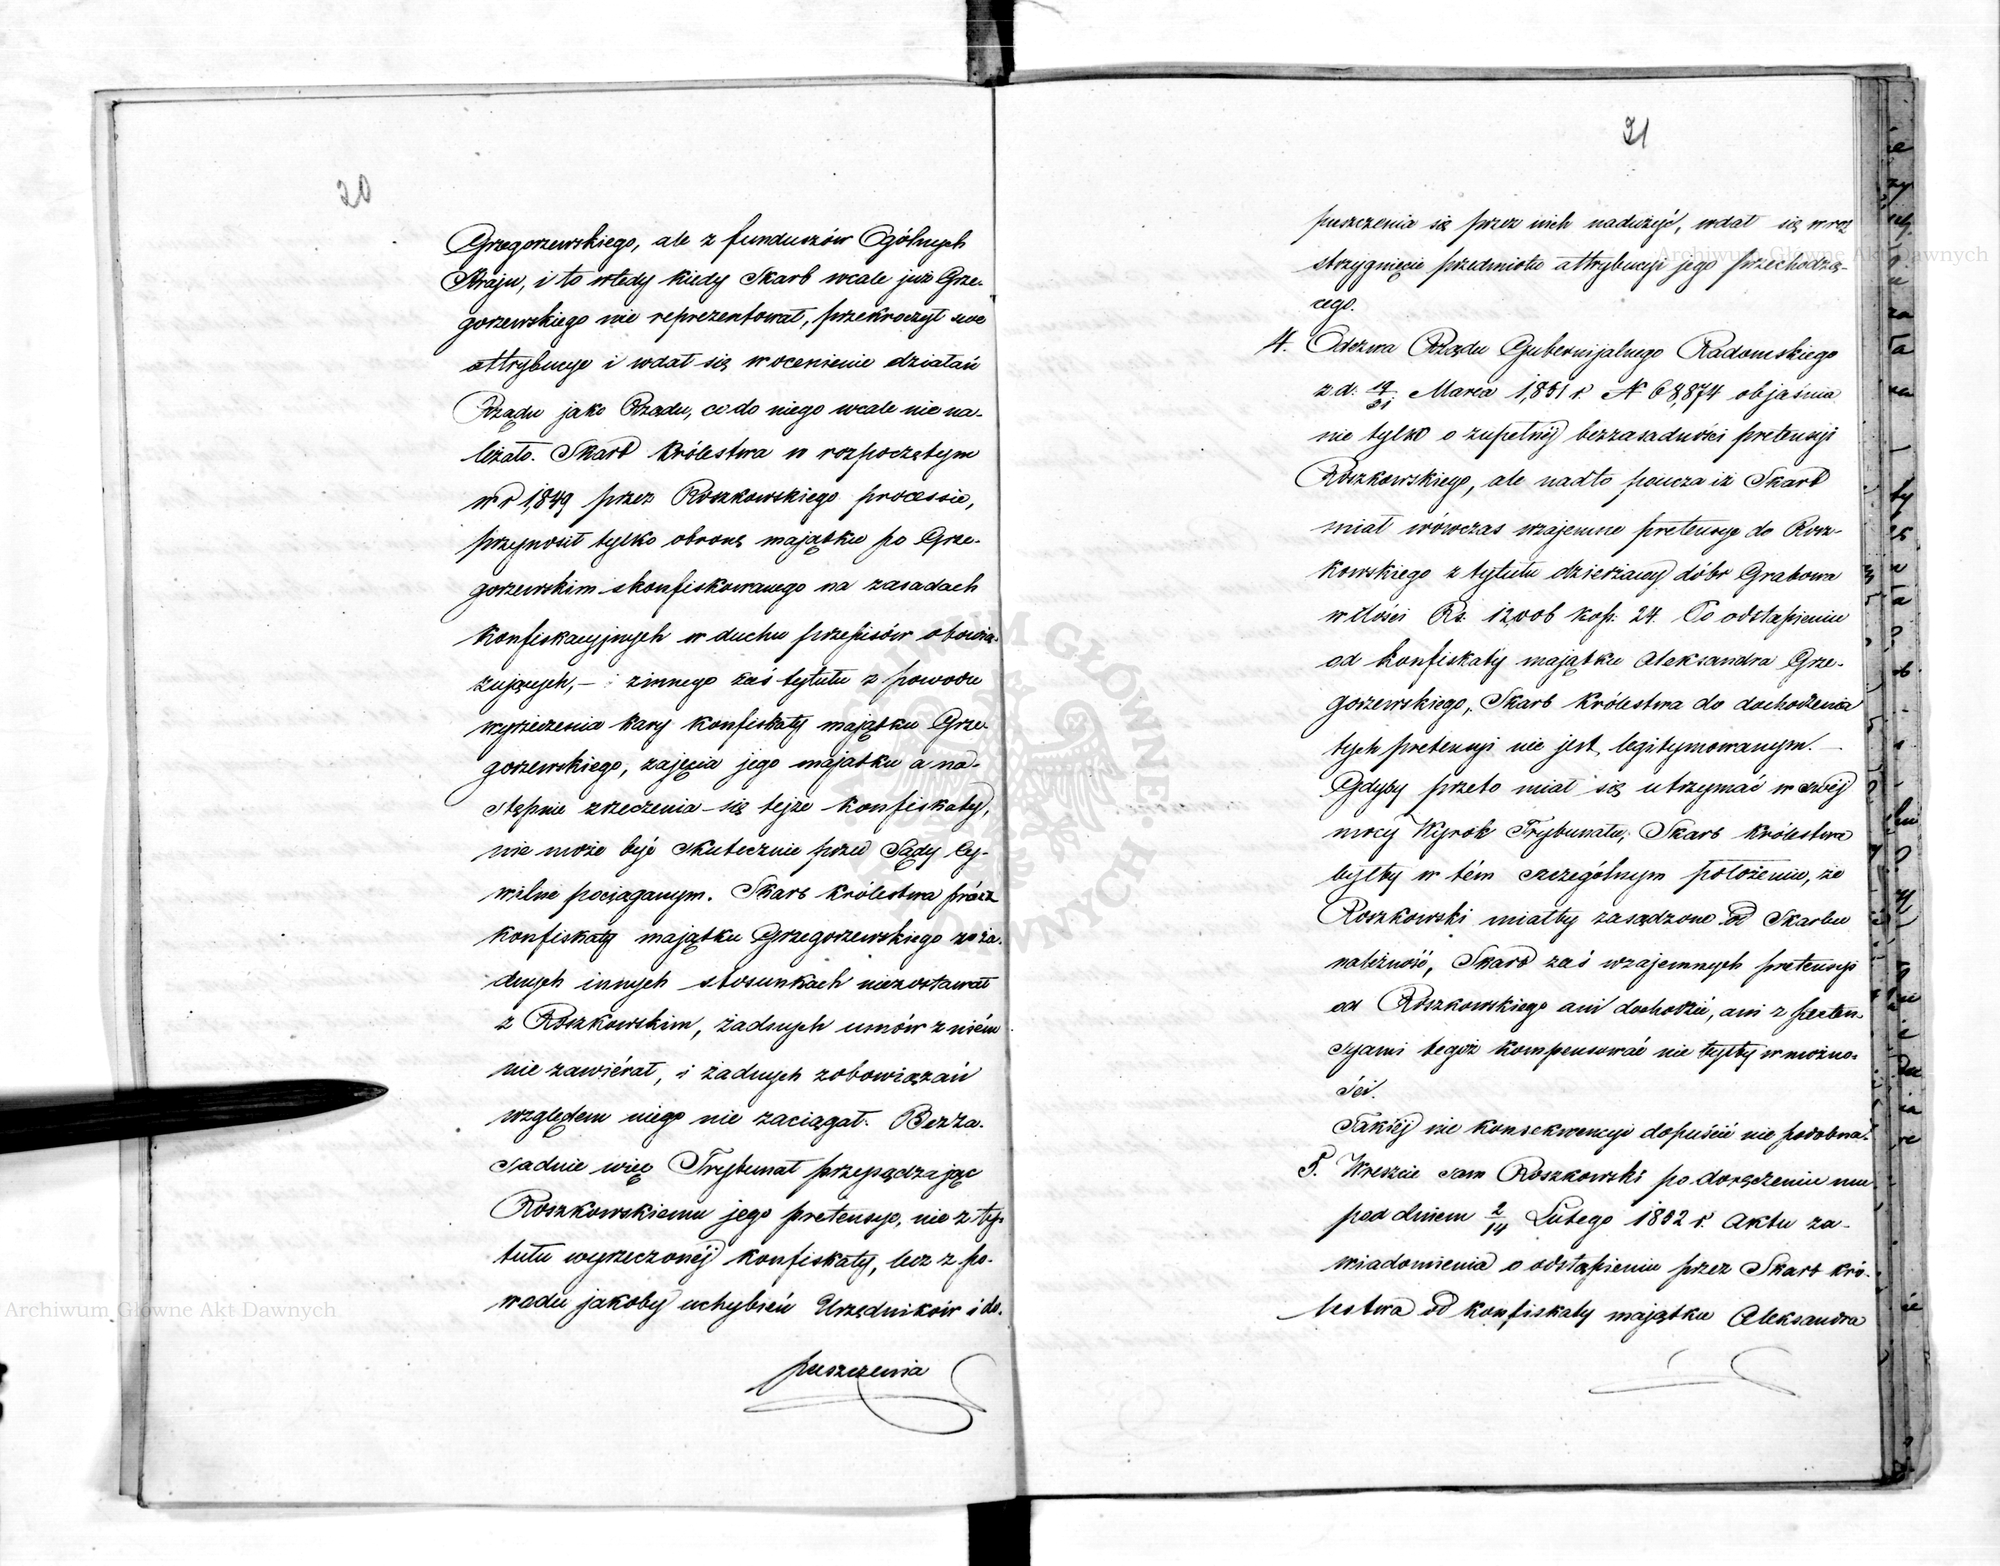 20
Grzegorzewskiego, ale z funduszów Ogólnych
Kraju, i to wtedy kiedy Skarb wcale już Grze-
gorzewskiego nie reprezentował, przekroczył swe
attrybucye i wdał się w ocenienie działań
Rządu jako Rządu, co do niego wcale nie na-
leżało. Skarb Królestwa w rozpoczętym
w r 1,849 przez Roszkowskiego processie,
przynosił tylko obronę majątku po Grze-
gorzewskim skonfiskowanego na zasadach
Konfiskacyjnych w duchu przepisów obowią-
zujących, — z innego zaś tytułu z powodu
wyrzeczenia kary konfiskaty majątku Grze-
gorzewskiego, zajęcia jego majątku a na-
stępnie zrzeczenia się tejże konfiskaty,
nie może być skutecznie przed Sądy Cy-
wilne pociąganym. Skarb Królestwa prócz
konfiskaty majątku Grzegorzewskiego w ża-
dnych innych stosunkach niezostawał
z Roszkowskim, żadnych umów z niém
nie zawiérał, i żadnych zobowiązań
względem niego nie zaciągał. Bezza-
sadnie więc Trybunał przysądzając
Roszkowskiemu jego pretensye, nie z ty-
tułu wyrzeczonéj konfiskaty, lecz z po-
wodu jakoby uchybień Urzędników i do-
puszczenia
21
puszczenia się przez nich nadużyć, wdał się w roz
strzygnięcie przedmiotu attrybucyi jego przechodzą-
cego.
4. Odezwa Rządu Gubernijalnego Radomskiego
z d: 19/31 Marca 1,851 r. N 68,874 objaśnia
nie tylko o zupełnéj bezzasadności pretensyi
Roszkowskiego, ale nadto poucza iż Skarb
miał wówczas wzajemne pretensye do Rosz-
kowskiego z tytułu dzierżawy dóbr Grabowa
w ilości Rs. 12,006 kop. 24. Po odstąpieniu
od konfiskaty majątku Aleksandra Grze-
gorzewskiego, Skarb Królestwa do dochodzenia
tych pretensyi nie jest legitymowanym. —
Gdyby przeto miał się utrzymać w swéj
mocy Wyrok Trybunału, Skarb Królestwa
byłby w tém szczególnym położeniu, że
Roszkowski miałby zasądzone od Skarbu
należność, Skarb zaś wzajemnych pretensyi
od Roszkowskiego ani dochodzić, ani z preten-
syami tegoż kompensować nie byłby w możno-
ści.
Takiéj nie konsekwencyi dopuścić nie podobna.
5. Wreszcie sam Roszkowski po doręczeniu mu
pod dniem 2/14 Lutego 1852 r. Aktu za-
wiadomienia o odstąpieniu przez Skarb Kró-
lestwa od konfiskaty majątku Aleksandra
Archiwum Główne Akt Dawnych
Archiwum Główne Akt Dawnych